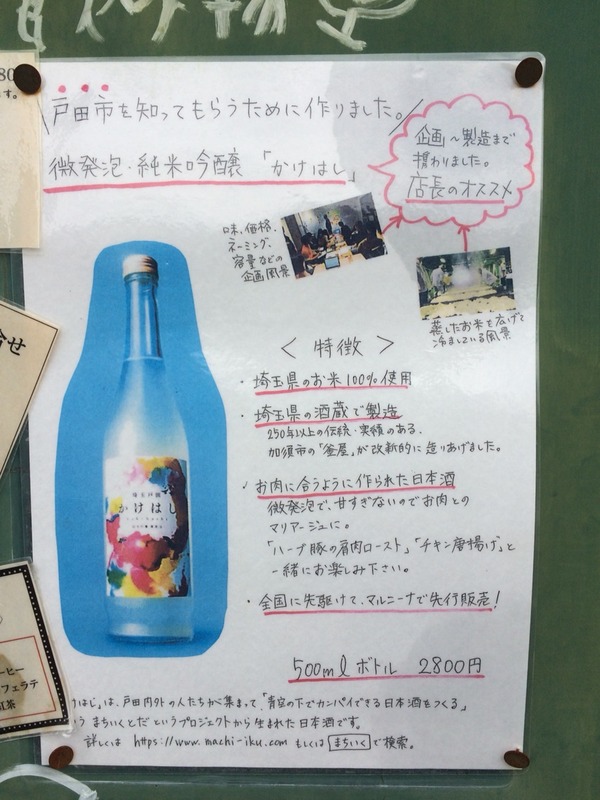 80
す。
\戸田市を知ってもらうために作りました。/
微発泡・純米吟醸「かけはし」
企画〜製造まで
携わりました。
店長のオススメ
味、価格、
ネーミング、
容量などの
企画風景
蒸したお米を広げて
冷ましている風景
<特徴>
・埼玉県のお米100%使用
・埼玉県の酒蔵で製造
250年以上の伝統・実績のある、
加須市の「釜屋」が改新的に造りあげました。
・お肉に合うように作られた日本酒
微発泡で、甘すぎないのでお肉との
マリアージュに。
「ハーブ豚の肩肉ロースト」「チキン唐揚げ」と
一緒にお楽しみ下さい。
・全国に先駆けて、マルニーナで先行販売!
500mlボトル 2800円
けはし」は、戸田内外の人たちが集まって、「青空の下でカンパイできる日本酒をつくる」
いう まちいくとだ というプロジェクトから生まれた日本酒です。
詳しくは https://www.machi-iku.com もしくは まちいく で検索。
埼玉戸田
かけはし
合せ
ーヒー
フェラテ
紅茶